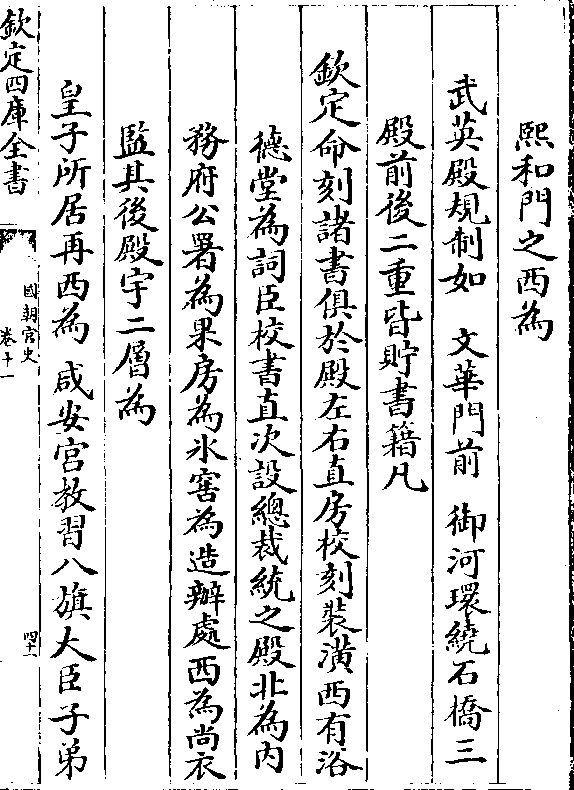 熙和門之西為
武英殿規制如　文華門前　御河環繞石橋三
殿前後二重皆貯書籍凡
欽定命刻諸書俱於殿左右直房校刻裝潢西有浴
德堂為詞臣校書直次設總裁統之殿北為内
務府公署為果房為氷窖為造辦處西為尚衣
監其後殿宇二層為
皇子所居再西為　咸安宫教習八旗大臣子弟
欽定四庫全書
國朝宫史
卷十一
四十一